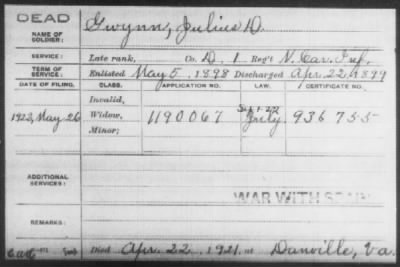 DEAD
NAME OF SOLDIER:
Gwynn, Julius D.
SERVICE:
Late rank, Co. D. 1 Reg't N. Car. Inf.
TERM OF SERVICE:
Enlisted May 5, 1898 Discharged Apr. 22, 1899
DATE OF FILING. CLASS. APPLICATION NO. LAW. CERTIFICATE NO.
Invalid,
1923, May 26 Widow, 1190067 July 936755
Minor;
ADDITIONAL SERVICES:
WAR WITH SPAIN
REMARKS:
Died Apr. 22, 1921, at Danville, Va.